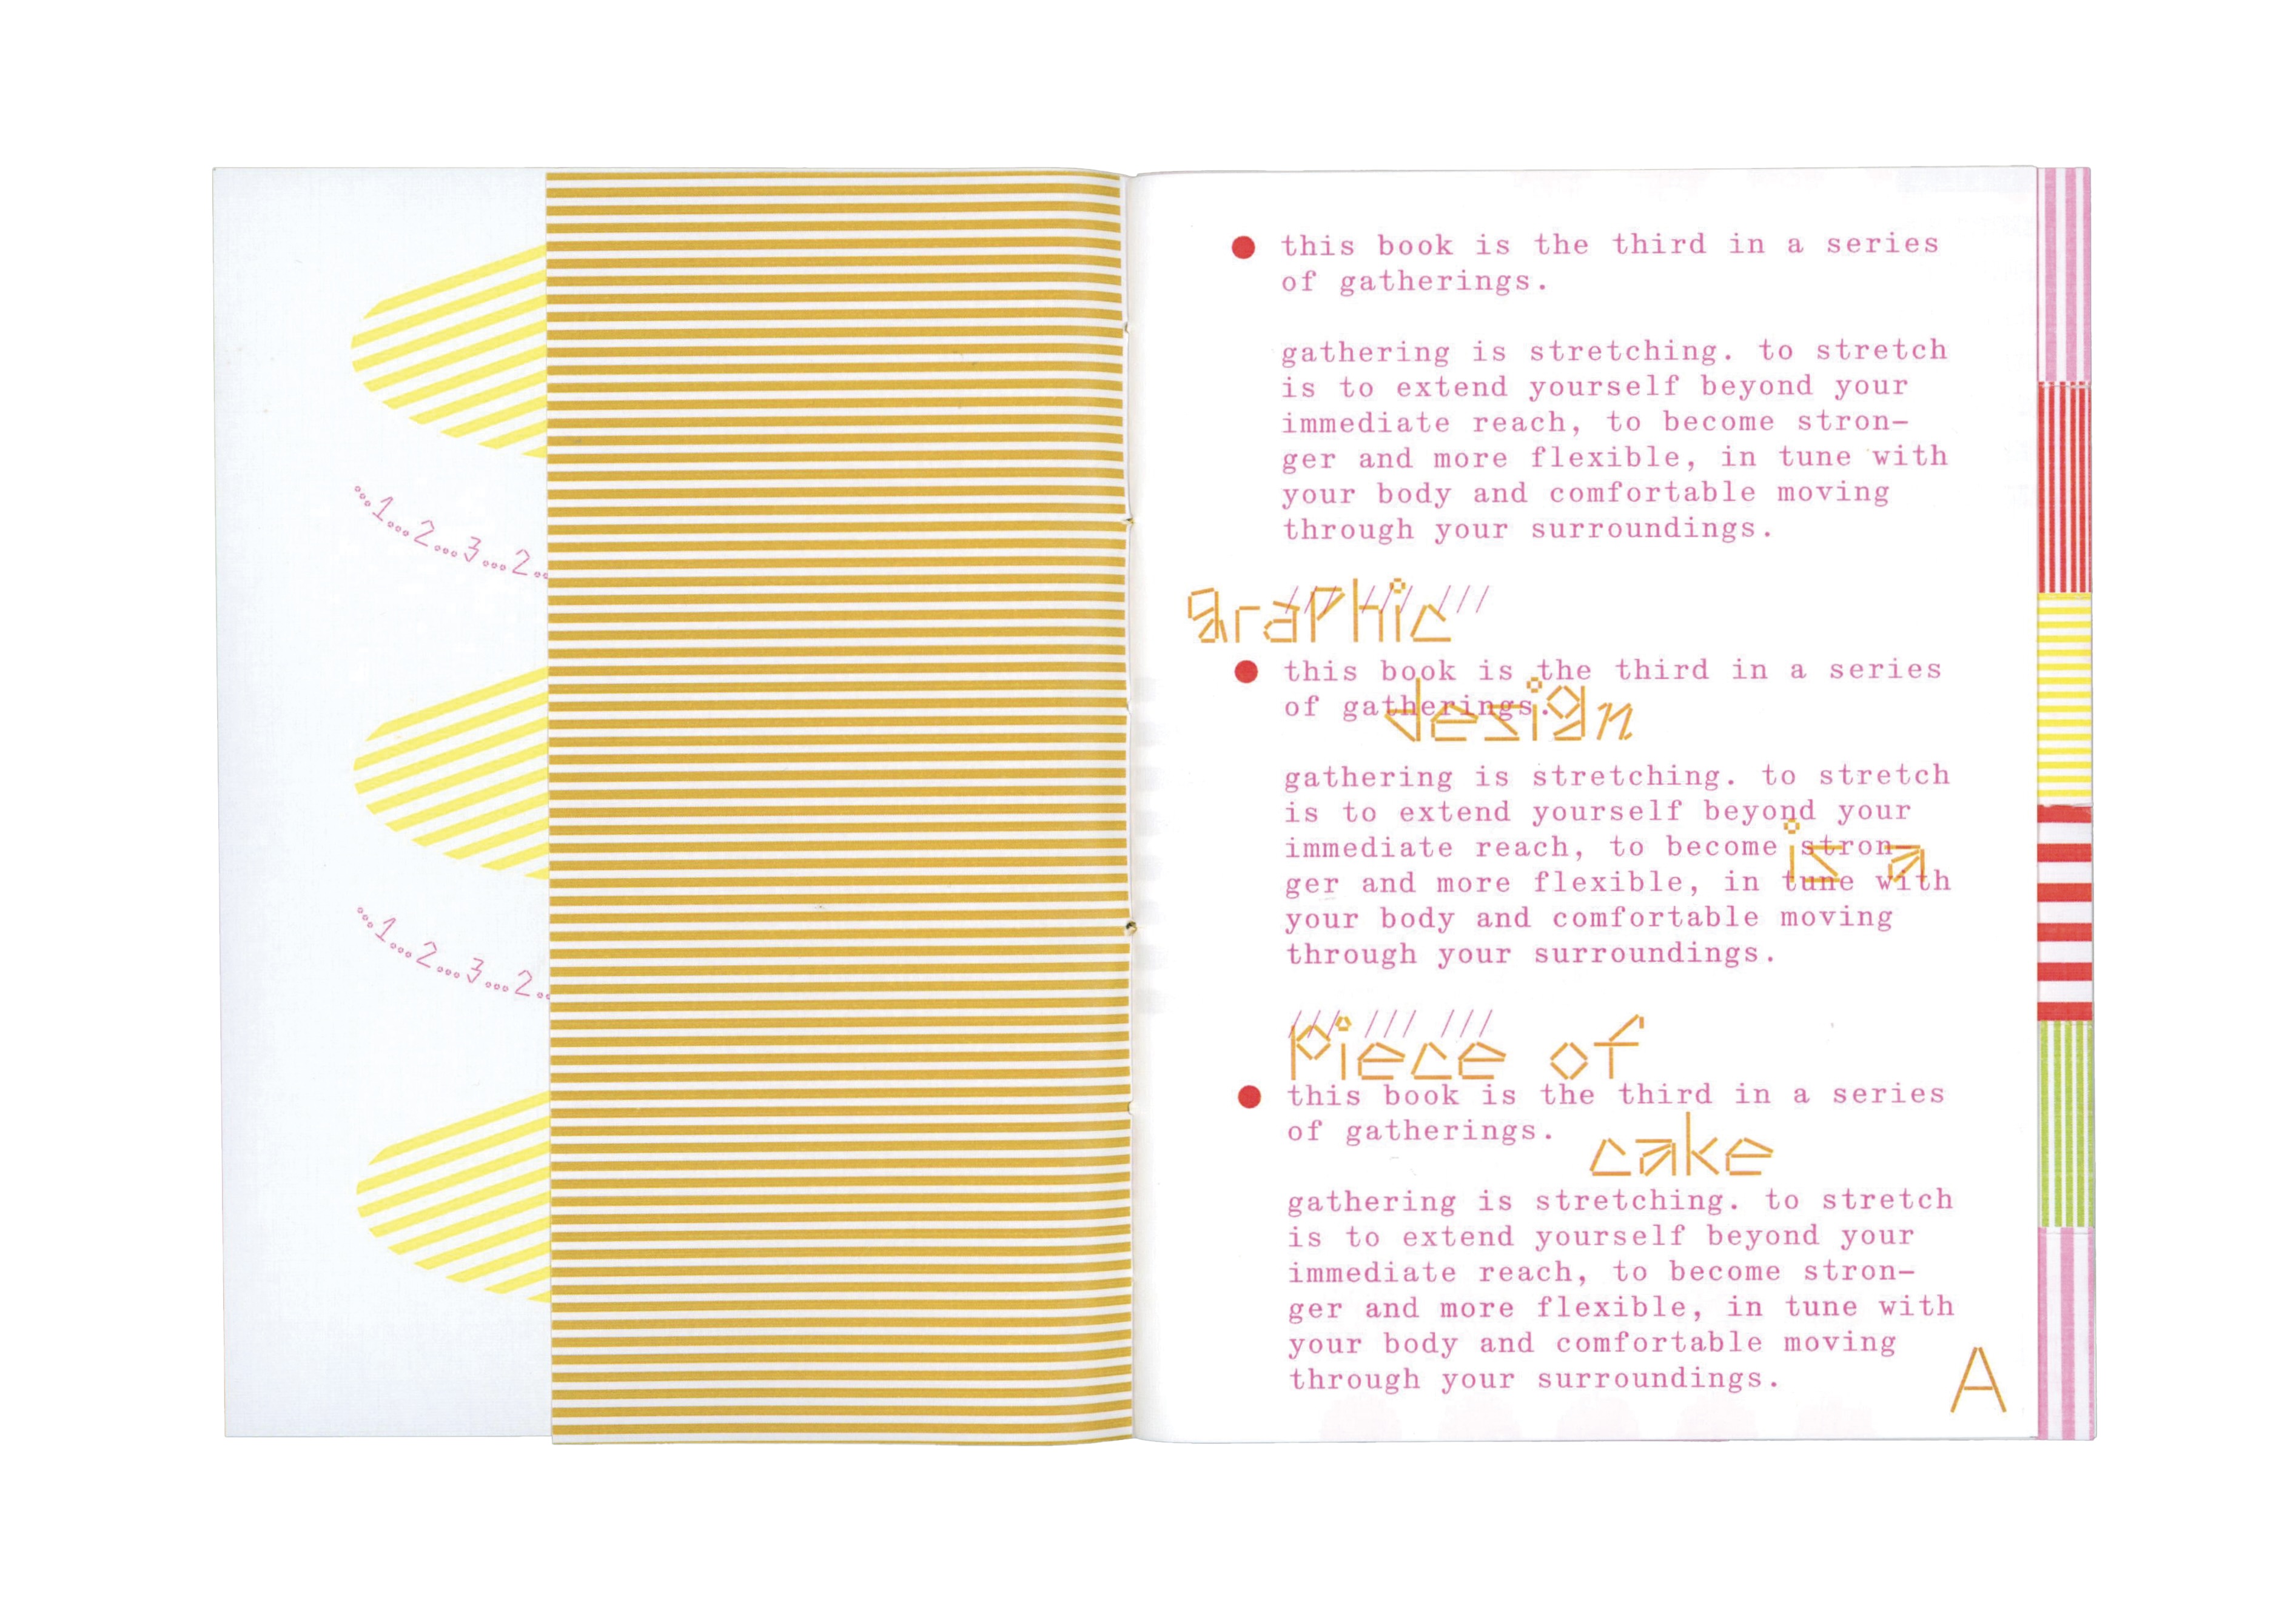 ...1...2...3...2..
...1...2...3...2..
this book is the third in a series
of gatherings.
gathering is stretching. to stretch
is to extend yourself beyond your
immediate reach, to become stron-
ger and more flexible, in tune with
your body and comfortable moving
through your surroundings.
/// /// ///
graphic
this book is the third in a series
of gatherings.
design
gathering is stretching. to stretch
is to extend yourself beyond your
immediate reach, to become stron-
is a
ger and more flexible, in tune with
your body and comfortable moving
through your surroundings.
/// /// ///
Piece of
this book is the third in a series
of gatherings.
cake
gathering is stretching. to stretch
is to extend yourself beyond your
immediate reach, to become stron-
ger and more flexible, in tune with
your body and comfortable moving
through your surroundings.
A